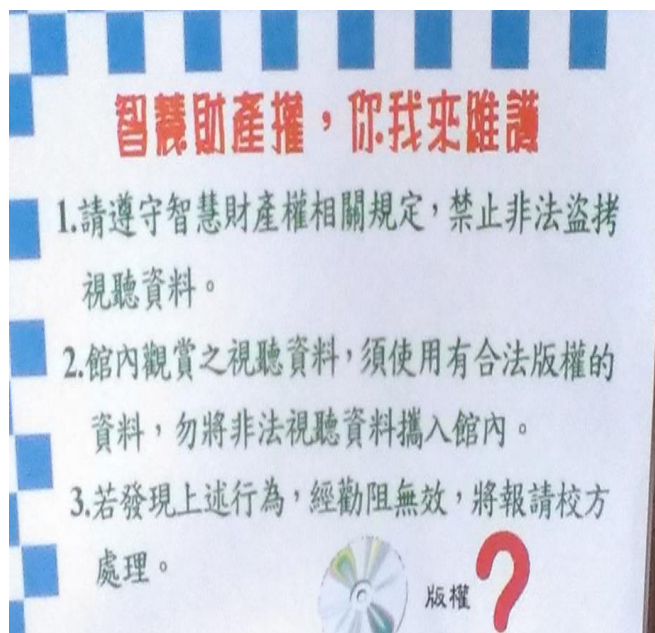 智慧財產權，你我來維護
1.請遵守智慧財產權相關規定，禁止非法盜拷
視聽資料。
2.館內觀賞之視聽資料，須使用有合法版權的
資料，勿將非法視聽資料攜入館內。
3.若發現上述行為，經勸阻無效，將報請校方
處理。
版權？